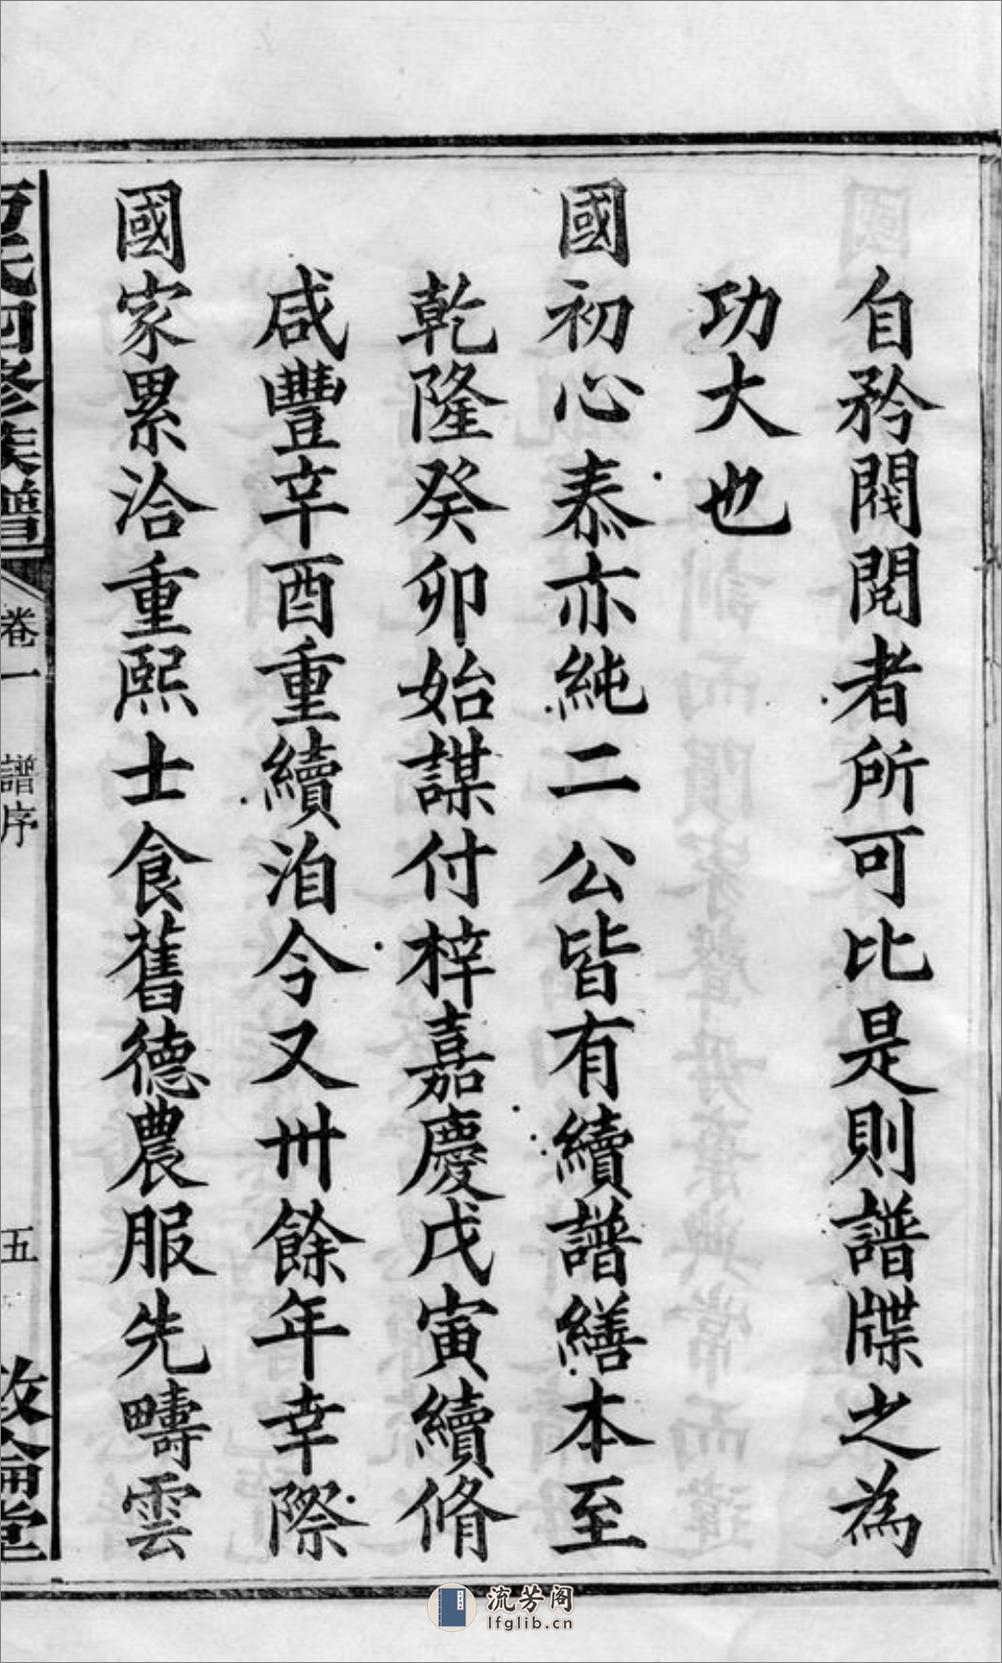 自矜閥閱者所可比是則譜牒之為
功大也
國初心㳟亦純二公皆有續譜繕本至
乾隆癸卯始謀付梓嘉慶戊寅續脩
咸豐辛酉重續洎今又卅餘年幸際
國家累洽重熙士食舊德農服先疇雲
氏四修族譜
卷一
譜序
五
敦倫堂
流芳阁
lfglib.cn